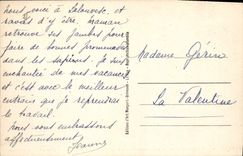 nous voici à Lalouvesc, et
ravies d'y être, maman
retrouve ses jambes pour
faire de bonnes promenades
dans les sapins. Je suis
enchantée de mes vacances
et c'est avec le meilleur
entrain que je reprendrai
le travail.
nous vous embrassons
affectueusement
Jeanne
Madame Gérin
La Valentine